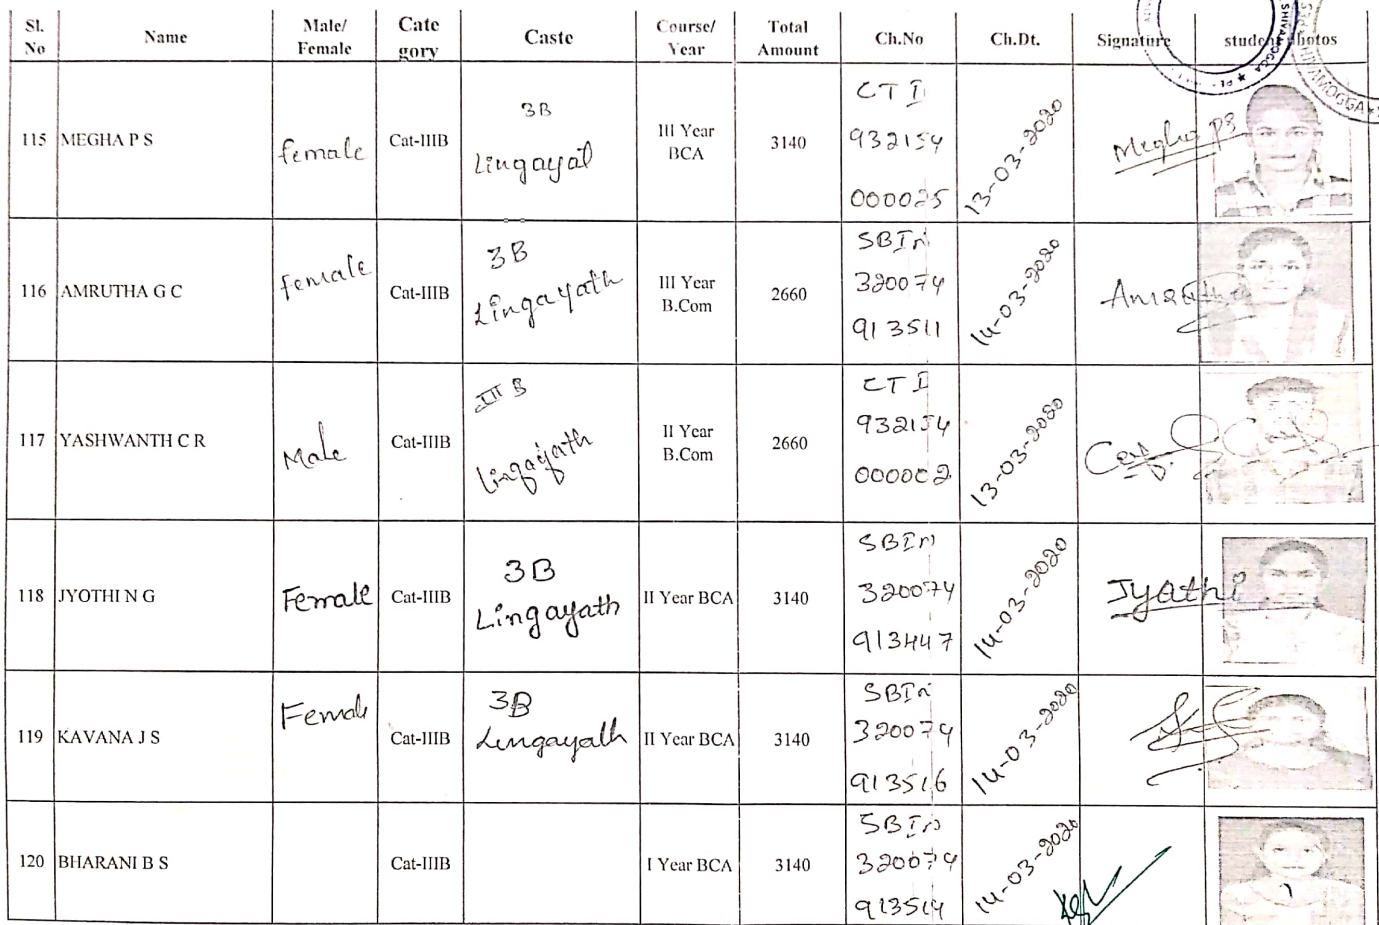 Sl. No Name Male/ Female Cate gory Caste Course/ Year Total Amount Ch.No Ch.Dt. Signature student photos
SHIVAMOGGA
SHIVAMOGGA
115 MEGHA P S female Cat-IIIB 3B Lingayat III Year BCA 3140 CTI 932154 000025 13-03-2020 Megha PS
116 AMRUTHA G C female Cat-IIIB 3B Lingayath III Year B.Com 2660 SBIn 320074 913511 14-03-2020 Amrutha
117 YASHWANTH C R Male Cat-IIIB III B Lingayath II Year B.Com 2660 CTI 932154 000002 13-03-2020
118 JYOTHI N G Female Cat-IIIB 3B Lingayath II Year BCA 3140 SBIn 320074 913447 14-03-2020 Jyothi
119 KAVANA J S Female Cat-IIIB 3B Lingayath II Year BCA 3140 SBIn 320074 913516 14-03-2020
120 BHARANI B S Cat-IIIB I Year BCA 3140 SBIn 320074 913514 14-03-2020